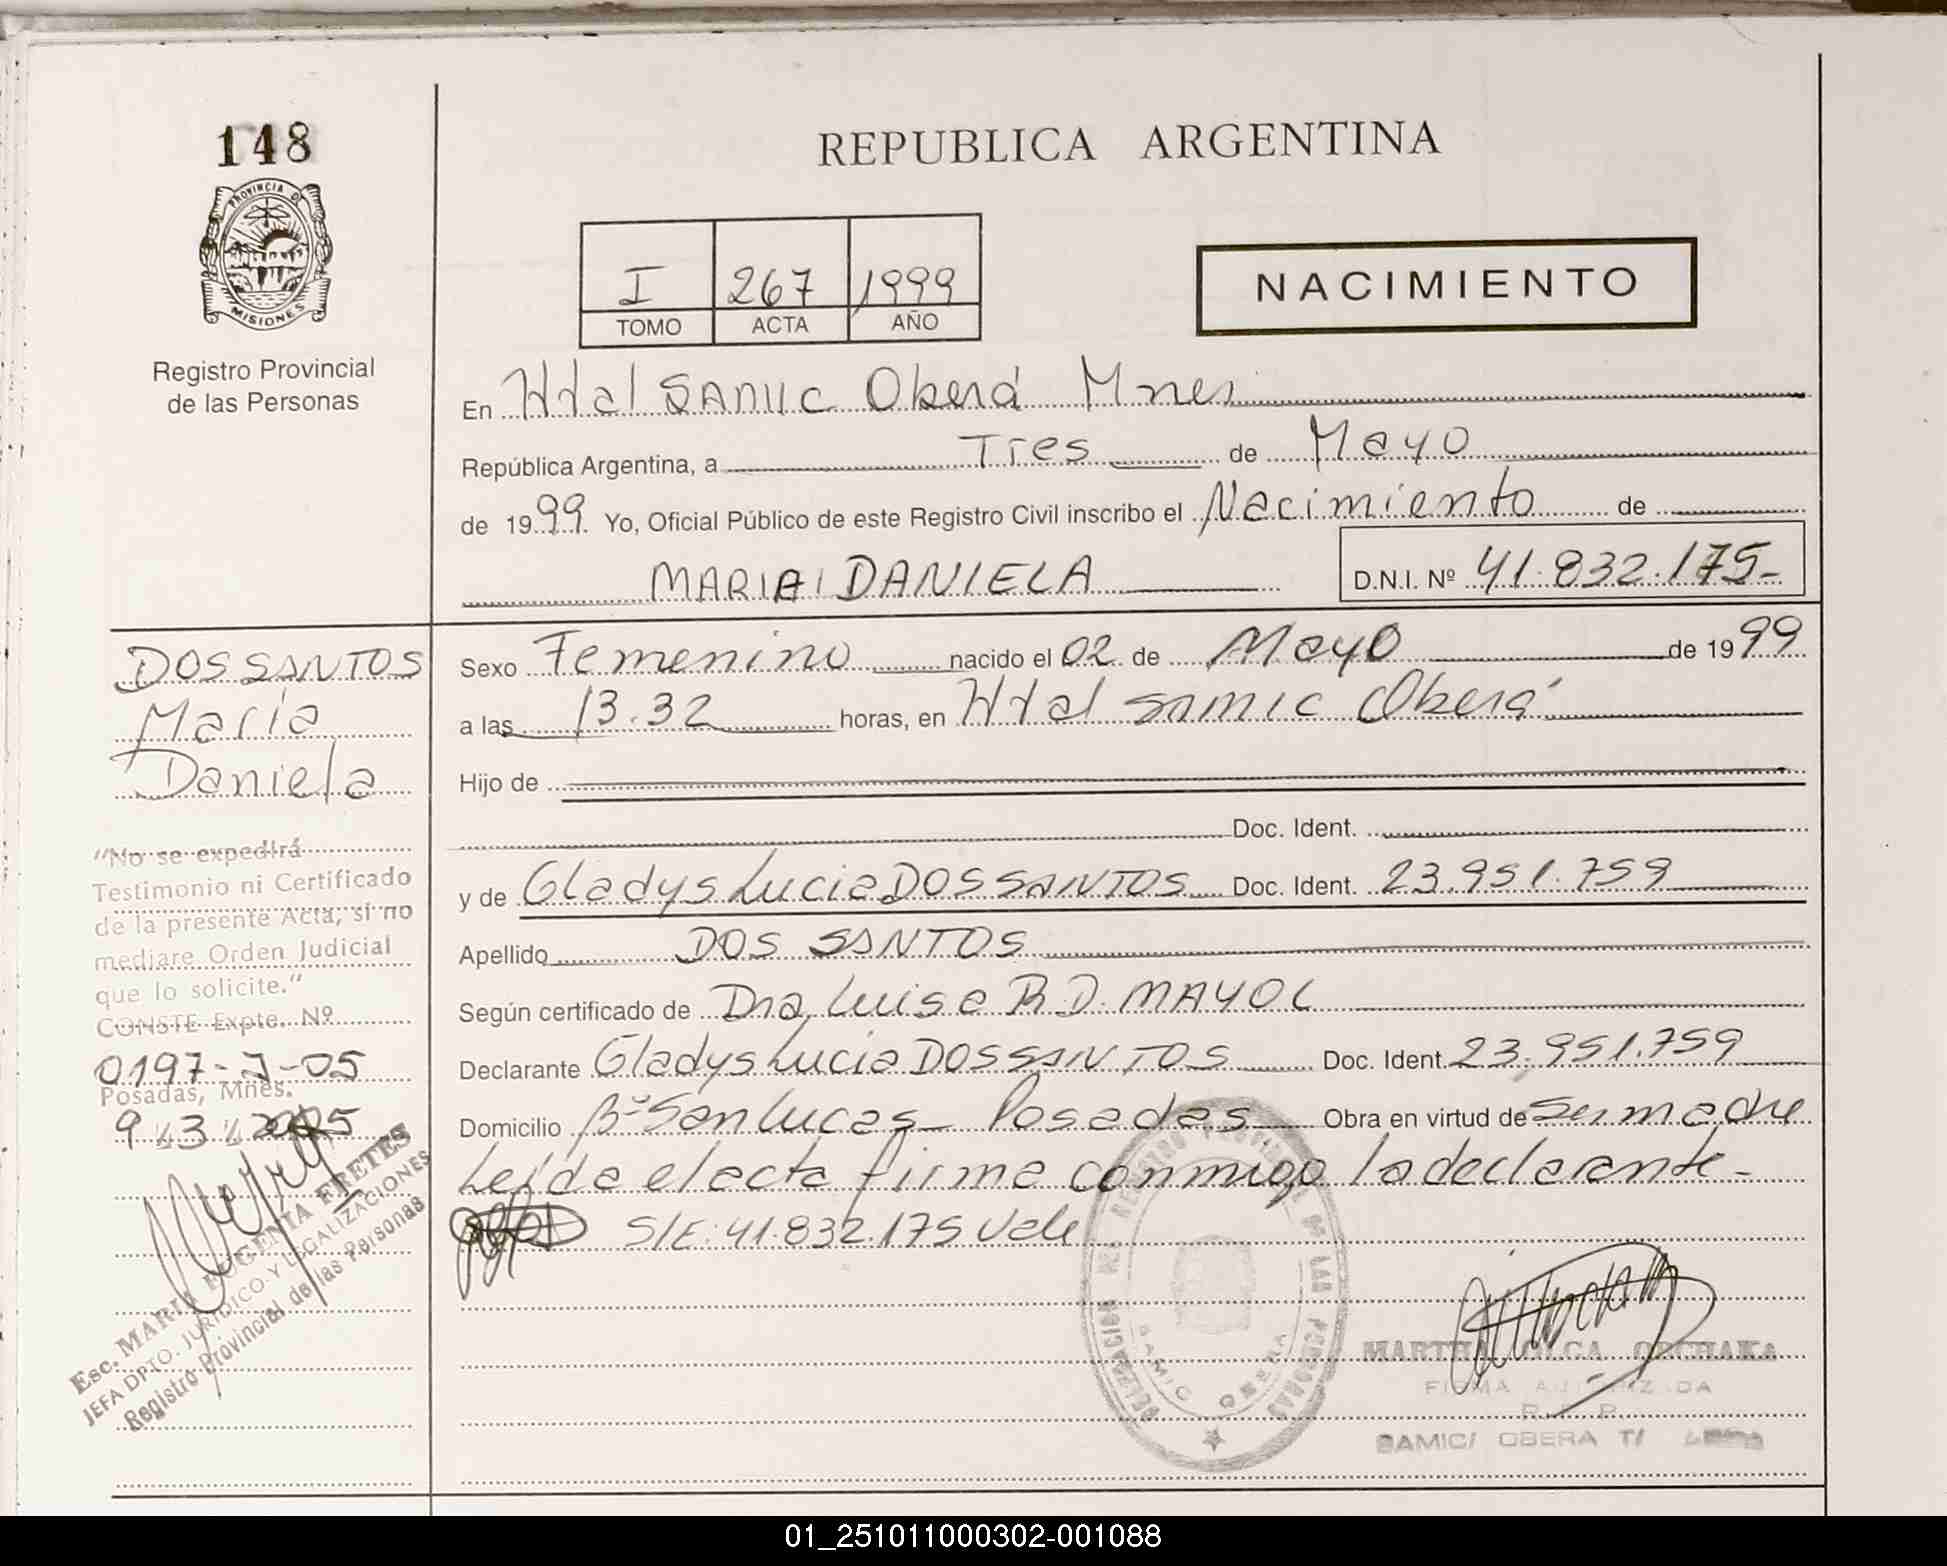 148
PROVINCIA DE
MISIONES
Registro Provincial
de las Personas
REPUBLICA ARGENTINA
I 267 1999
TOMO ACTA AÑO
NACIMIENTO
En Htal SAMIC Oberá Mnes
República Argentina, a Tres de Mayo
de 1999 Yo, Oficial Público de este Registro Civil inscribo el Nacimiento de
MARIA DANIELA D.N.I. Nº 41.832.175-
DOS SANTOS
María
Daniela
"No se expedirá
Testimonio ni Certificado
de la presente Acta, si no
mediare Orden Judicial
que lo solicite."
CONSTE Expte. Nº
0197-J-05
Posadas, Mnes.
9 / 3 / 2005
Esc. MARIA EUGENIA FRETES
JEFA DPTO. JURIDICO Y LEGALIZACIONES
Registro Provincial de las Personas
Sexo Femenino nacido el 02 de Mayo de 1999
a las 13.32 horas, en Htal SAMIC Oberá
Hijo de
Doc. Ident.
y de Gladys Lucia DOS SANTOS Doc. Ident. 23.951.759
Apellido DOS SANTOS
Según certificado de Dra Luisa R.D. MAYOL
Declarante Gladys Lucia DOS SANTOS Doc. Ident. 23.951.759
Domicilio Bº San Lucas Posadas Obra en virtud de Ser madre
Leída el acta firma conmigo la declarante-
S/E: 41.832.175 Vale
DELEGACION DEL REGISTRO PROVINCIAL DE LAS PERSONAS
SAMIC OBERA
MARTHA OLGA
FIRMA AUTORIZADA
R. P. P.
SAMIC/ OBERA T/
01_251011000302-001088